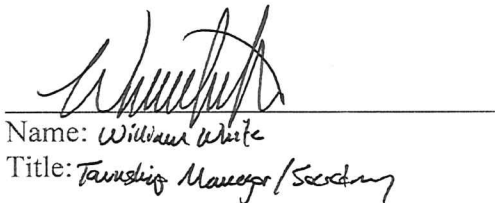 Name: William White
Title: Township Manager/Secretary